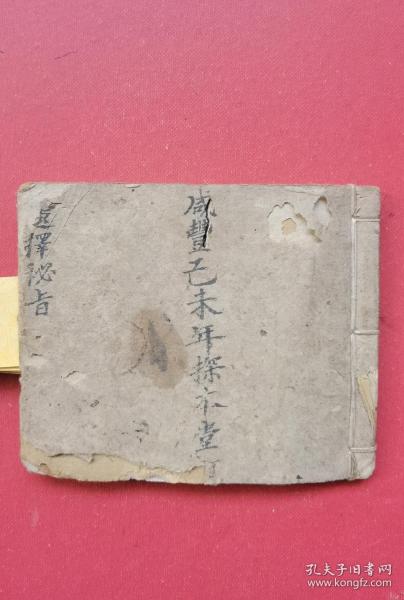 咸豐己未年探衣堂
選擇秘旨
孔夫子旧书网
www.kongfz.com